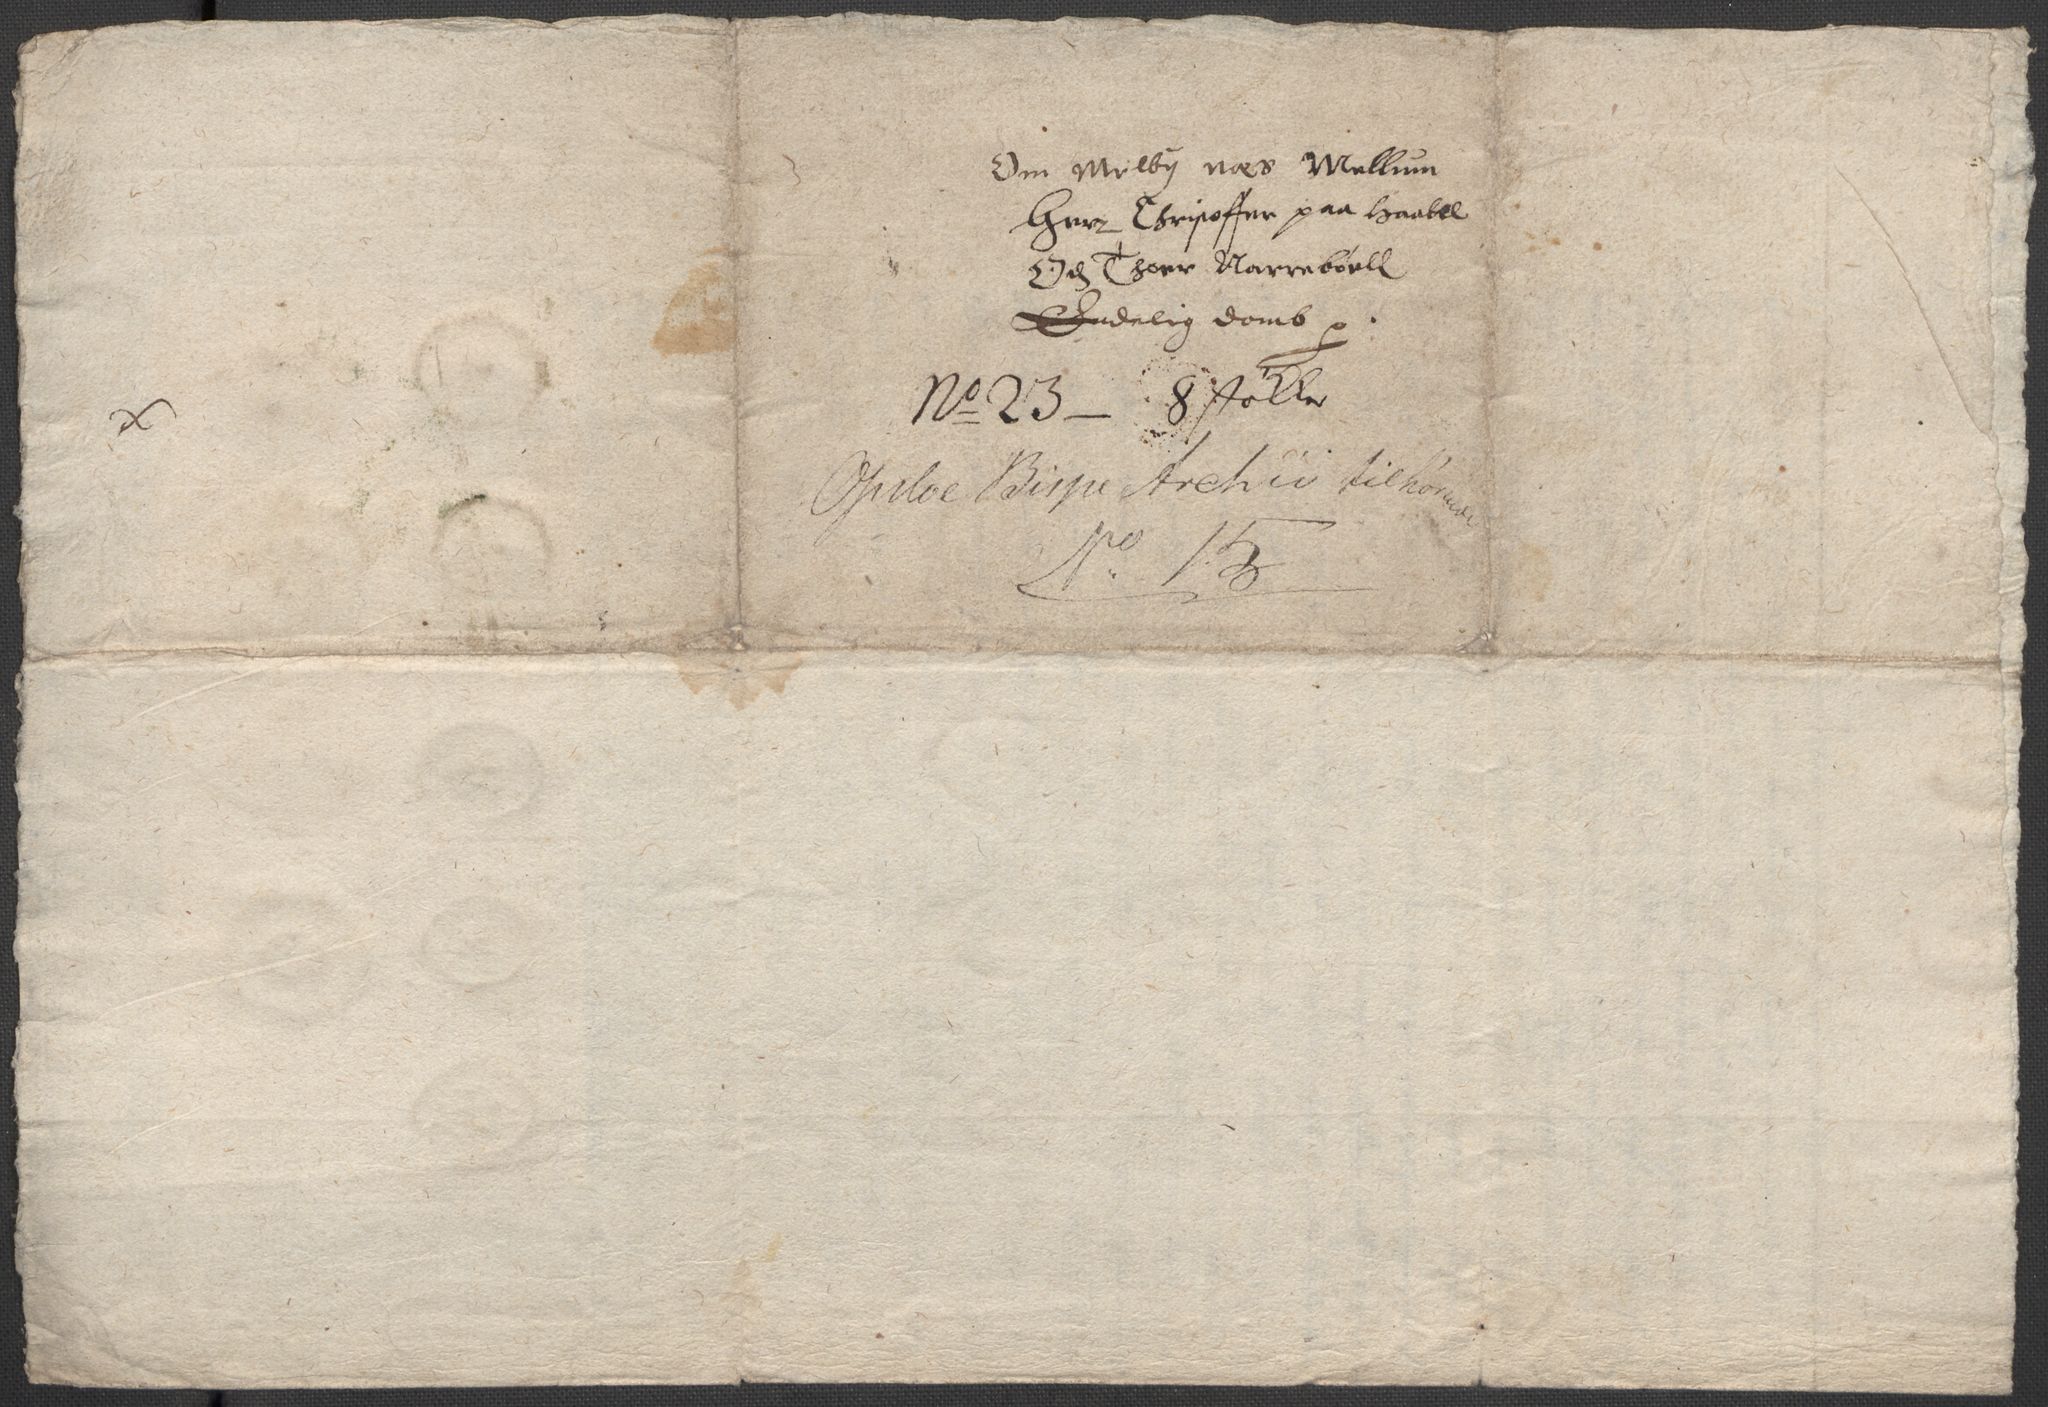 Om Melbÿ næs Mellum
Herr Chrisoffer paa Haabell
Och Thoer Narrebøell
Endelig domb
No 23 – 8 støkker
Opsloe Bispe Archiv tilhørende
No. 15